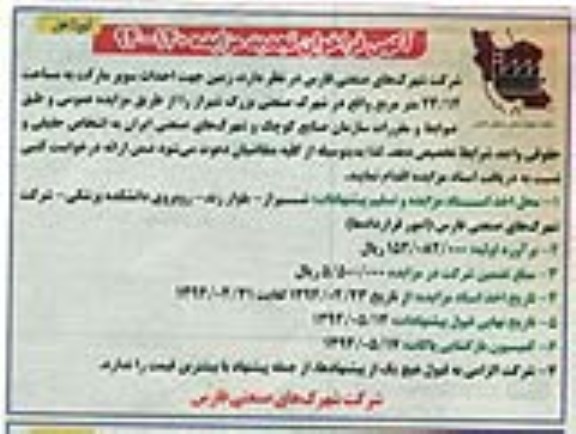 نوبت اول
آگهی فراخوان تجدید مزایده
شرکت شهرک‌های صنعتی فارس در نظر دارد، زمین جهت احداث سوپر مارکت به مساحت
متر مربع واقع در شهرک صنعتی بزرگ شیراز را از طریق مزایده عمومی و طبق
ضوابط و مقررات سازمان صنایع کوچک و شهرک‌های صنعتی ایران به اشخاص حقیقی و
حقوقی واجد شرایط تخصیص دهد. لذا بدینوسیله از کلیه متقاضیان دعوت می‌شود ضمن ارائه درخواست کتبی
نسبت به دریافت اسناد مزایده اقدام نمایند.
۱- محل اخذ اسناد مزایده و تسلیم پیشنهادات: شیراز- بلوار زند- روبروی دانشکده پزشکی- شرکت
شهرک‌های صنعتی فارس (امور قراردادها)
۲- برآورد اولیه: ریال
۳- مبلغ تضمین شرکت در مزایده ۵/۵۰۰/۰۰۰ ریال
۴- تاریخ اخذ اسناد مزایده: از تاریخ لغایت
۵- تاریخ نهایی قبول پیشنهادات:
۶- کمیسیون بازگشایی پاکات:
۷- شرکت الزامی به قبول هیچ یک از پیشنهادها، از جمله پیشنهاد با بیشترین قیمت را ندارد.
شرکت شهرک‌های صنعتی فارس